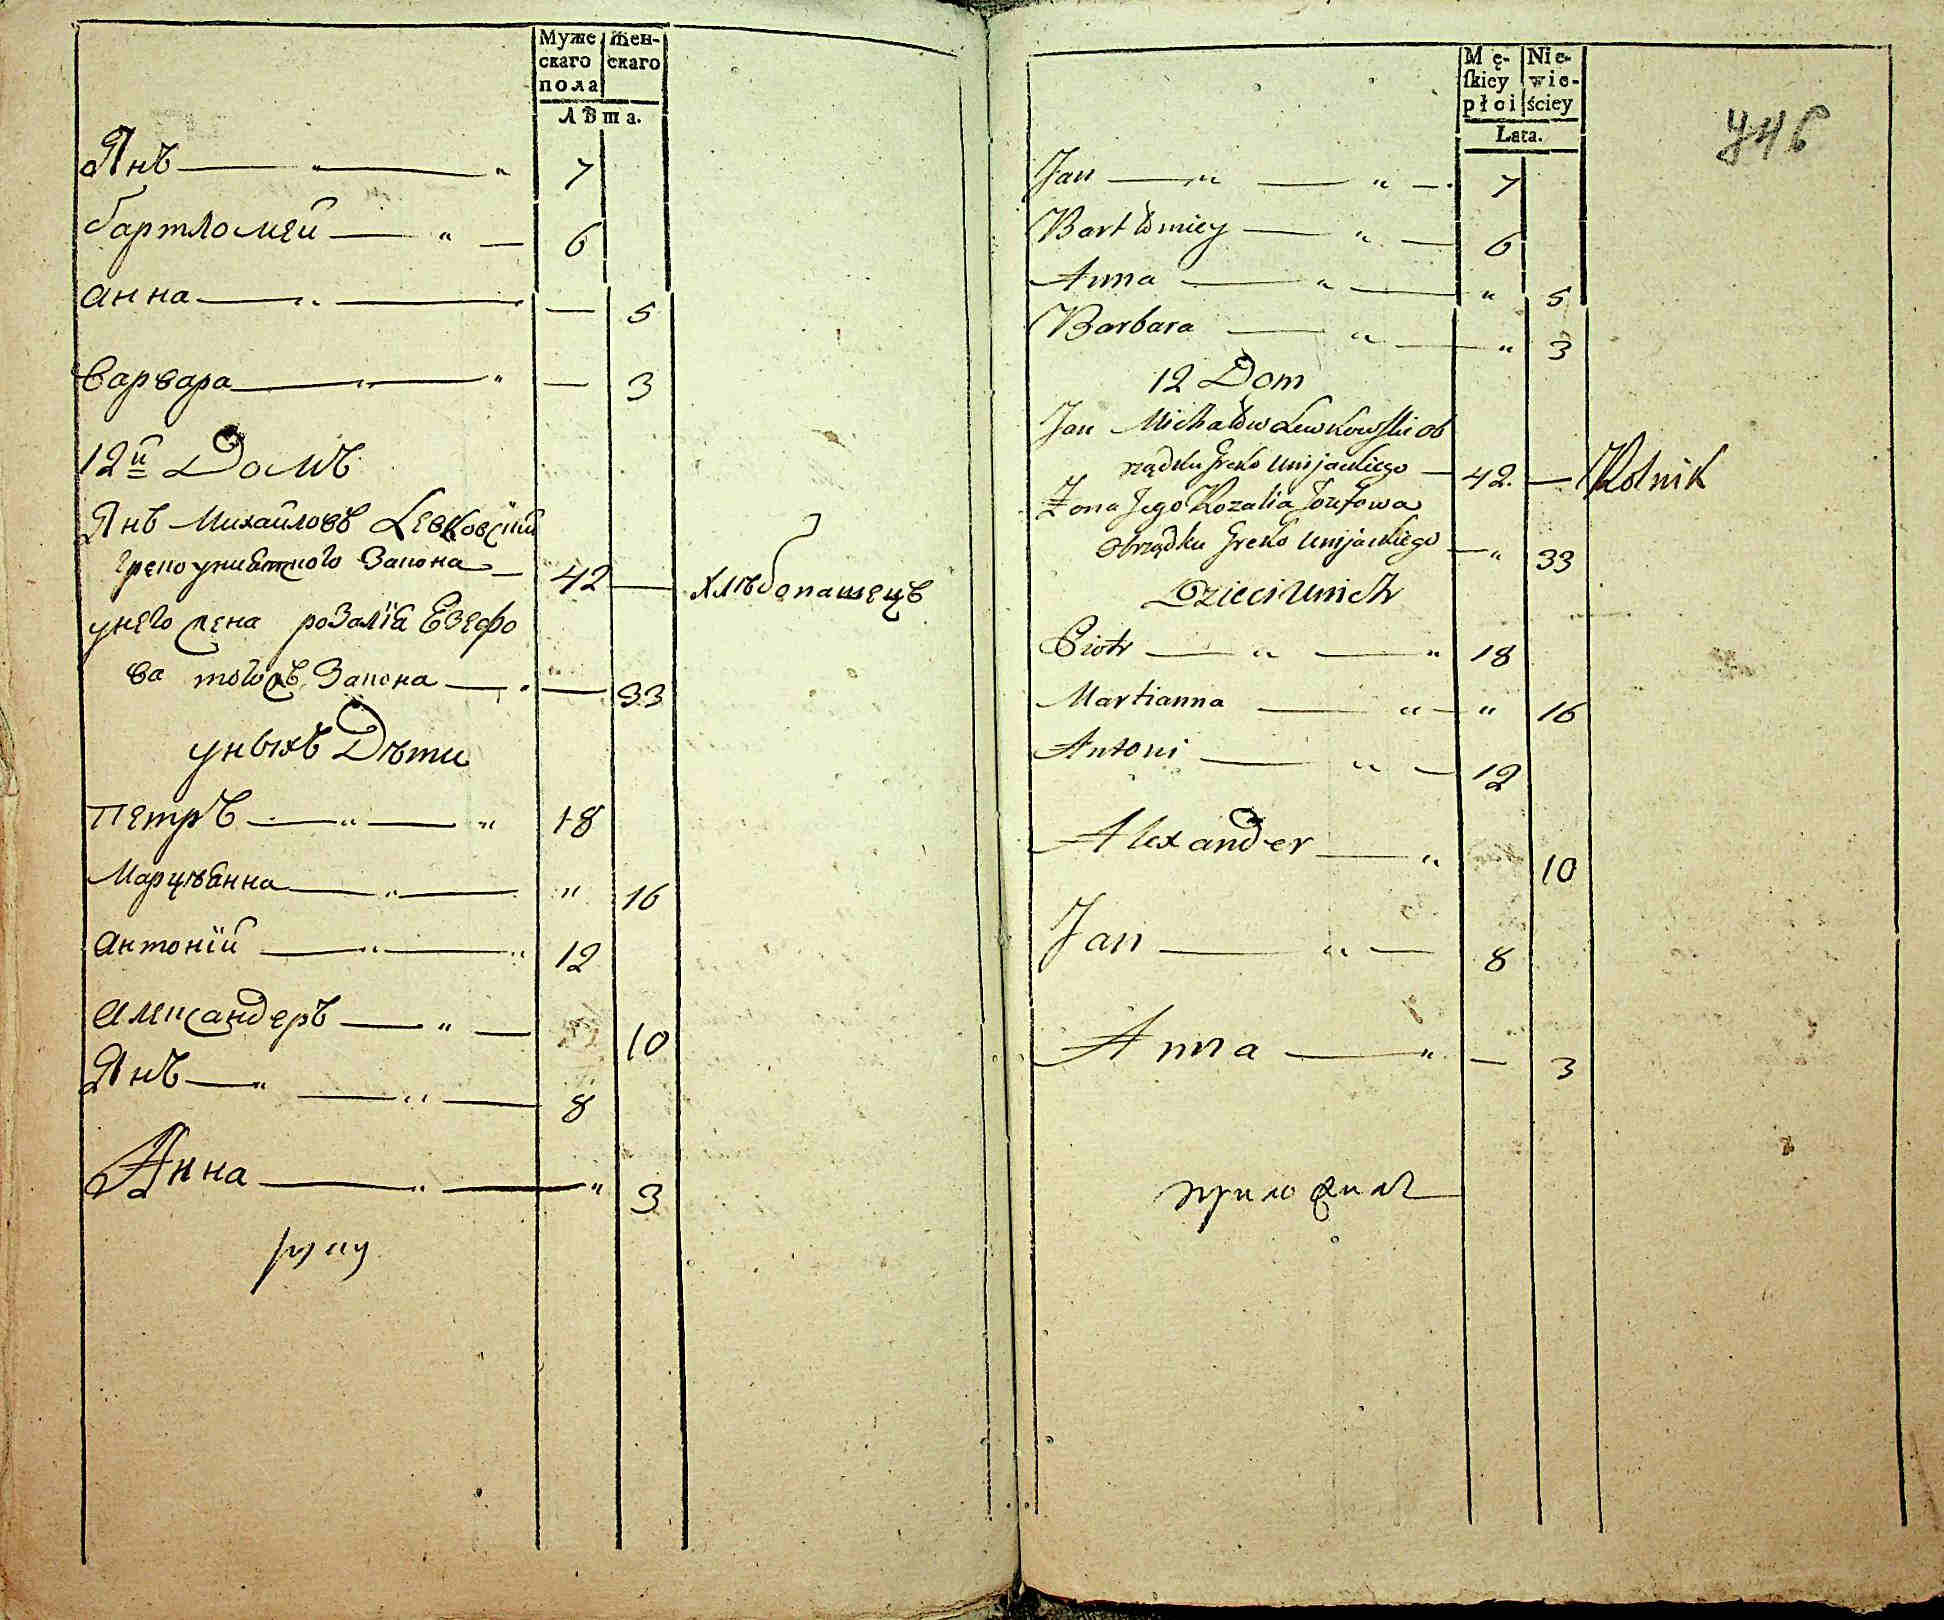 Муже Жен-
скаго скаго
пола
Лѣта.
Янъ — „ — „ 7
бартломей — „ — 6
анна — „ — — 5
варвара — „ — „ — 3
12й Домъ
Янъ Михайловъ Левковский
грекоуниатского Закона — 42 — хлѣбопашецъ
унего жена розалия Езефо
ва тогожъ Закона — „ — 33
уныхъ Дѣти
петръ — „ — „ 18
Марцыанна — „ — „ 16
антоний — „ — „ 12
александеръ — „ — 10
Янъ — „ — „ — 8
Анна — „ — „ 3
руку
Mę- Nie-
ſkiey wie-
płci ściey
Lata.
746
Jan — „ — „ — 7
Bartłomiey — „ — 6
Anna — „ — „ 5
Barbara — „ — „ 3
12 Dom
Jan Michałow Lewkowski ob
rządku Greko Unijackiego — 42. — Rolnik
Żona Jego Rozalia Jozefowa
obrządku Greko Unijackiego — „ 33
Dzieci Unich
Piotr — „ — „ 18
Martianna — „ — „ 16
Antoni — „ — 12
Alexander — „ 10
Jan — „ — 8
Anna — „ — 3
приложилъ